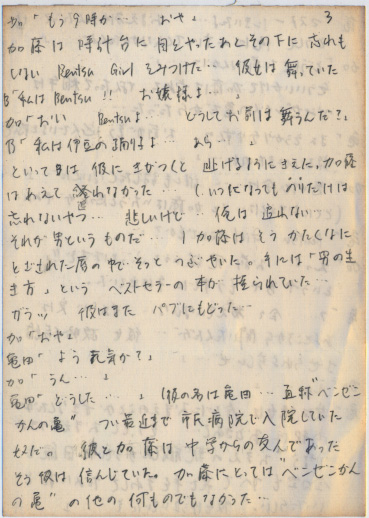 3
加「もう9時か… おや」
加藤は時計台に目をやったあとその下に忘れも
しない Bentsu Girl をみつけた… 彼女は舞っていた
B「私は Bentsu!! お嬢様よ…
加「おい Bentsuよ… どうしてお前は舞うんだ?」
B「私は伊豆の踊り子よ… おら… 」
といってBは彼にきがつくと 逃げるようにきえた,加藤
はあえて 追わなかった (いつになってもあいつだけは
忘れないやつ… 悲しいけど… 俺は追わない
それが男というものだ… ) 加藤は そう かたくなに
とざされた唇の中で そっと つぶやいた。手には「男の生
き方」という ベストセラーの 本が 握られていた…
ガラッ 彼はまた パブにもどった…
加「おや」
亀田「よう 元気か?」
加「うん…」
亀田「どうした…」 (彼の名は亀田… 通称"ベンゼン
かんの亀" つい最近まで 市民病院で入院していた
奴だ。 彼と加藤は 中学からの友人であった
そう彼は 信じていた。 加藤にとっては"ベンゼンかん
の亀"の他の何ものでもなかった…